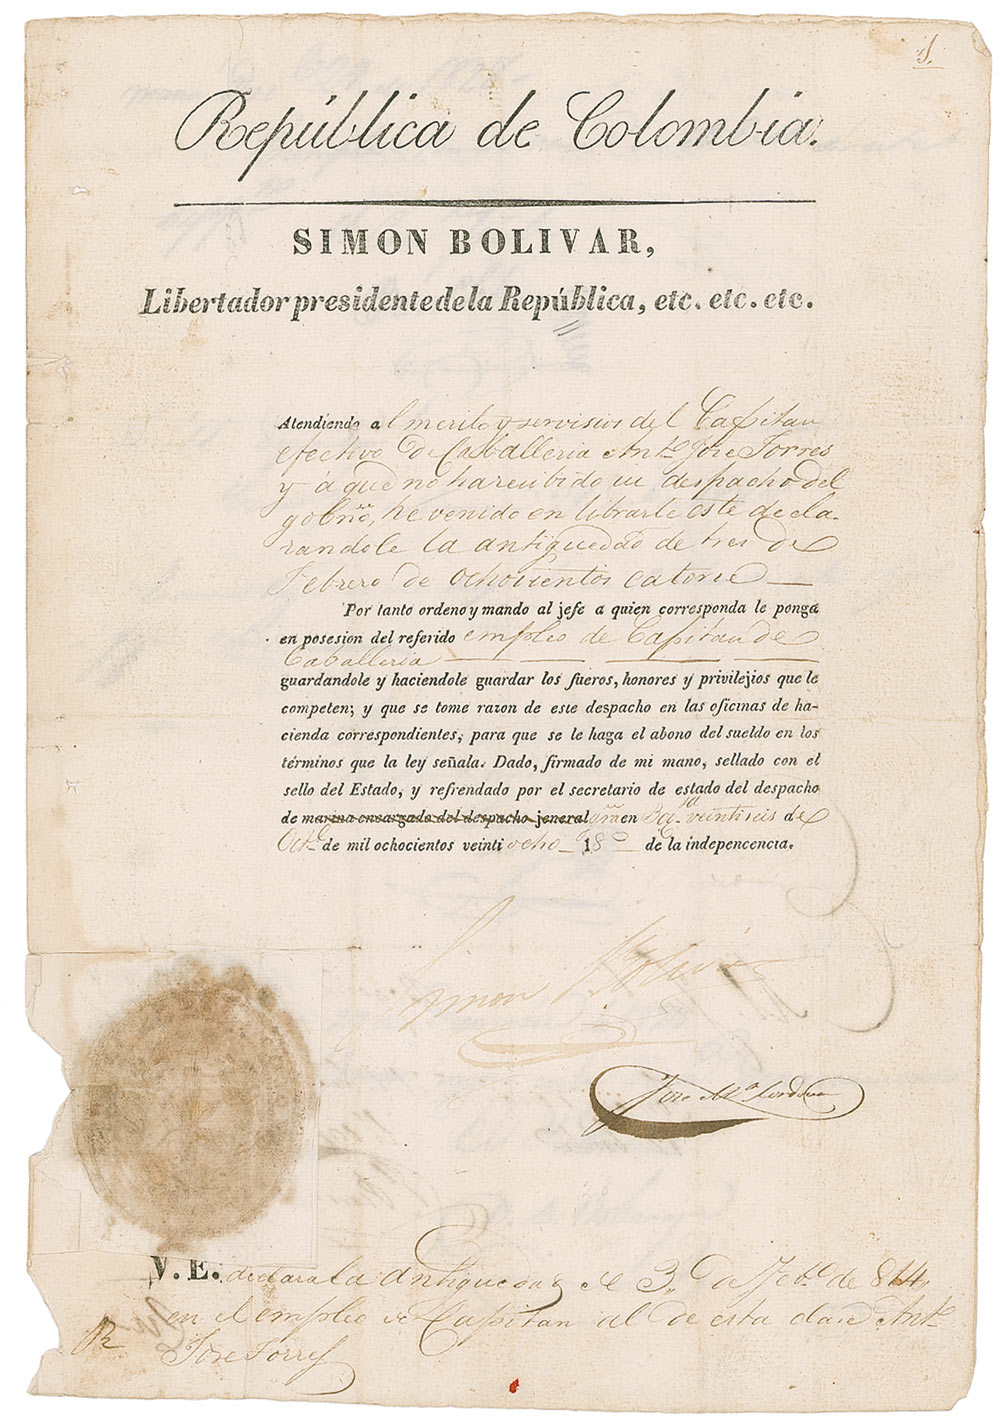 1.
República de Colombia.
SIMON BOLIVAR,
Libertador presidente de la República, etc. etc. etc.
Atendiendo al merito y servisios del Capitan
efectivo de Caballeria Ant.º Jose Torres
y á que no ha recibido su despacho del
gobno, he venido en librarle este decla-
randole la antiguedad de tres de
Febrero de ochocientos catorce
Por tanto ordeno y mando al jefe a quien corresponda le ponga
en posesion del referido empleo de Capitan de
Caballeria
guardandole y haciendole guardar los fueros, honores y privilejios que le
competen; y que se tome razon de este despacho en las oficinas de ha-
cienda correspondientes, para que se le haga el abono del sueldo en los
términos que la ley señala. Dado, firmado de mi mano, sellado con el
sello del Estado, y refrendado por el secretario de estado del despacho
de marina encargado del despacho jeneral en veintiseis de
Oct.e de mil ochocientos veinti ocho 18º de la indepencencia.
Simon Bolivar
Jose M.a Cordova
V. E. declara la antiguedad de 3 de Feb.º de 814
en el empleo de Capitan al de esta clase Ant.º
Jose Torres